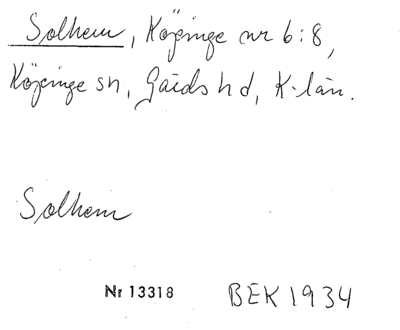 Solhem, Köpinge nr 6:8,
Köpinge sn, Gärds hd, K-län.
Solhem
Nr 13318 BEK 1934